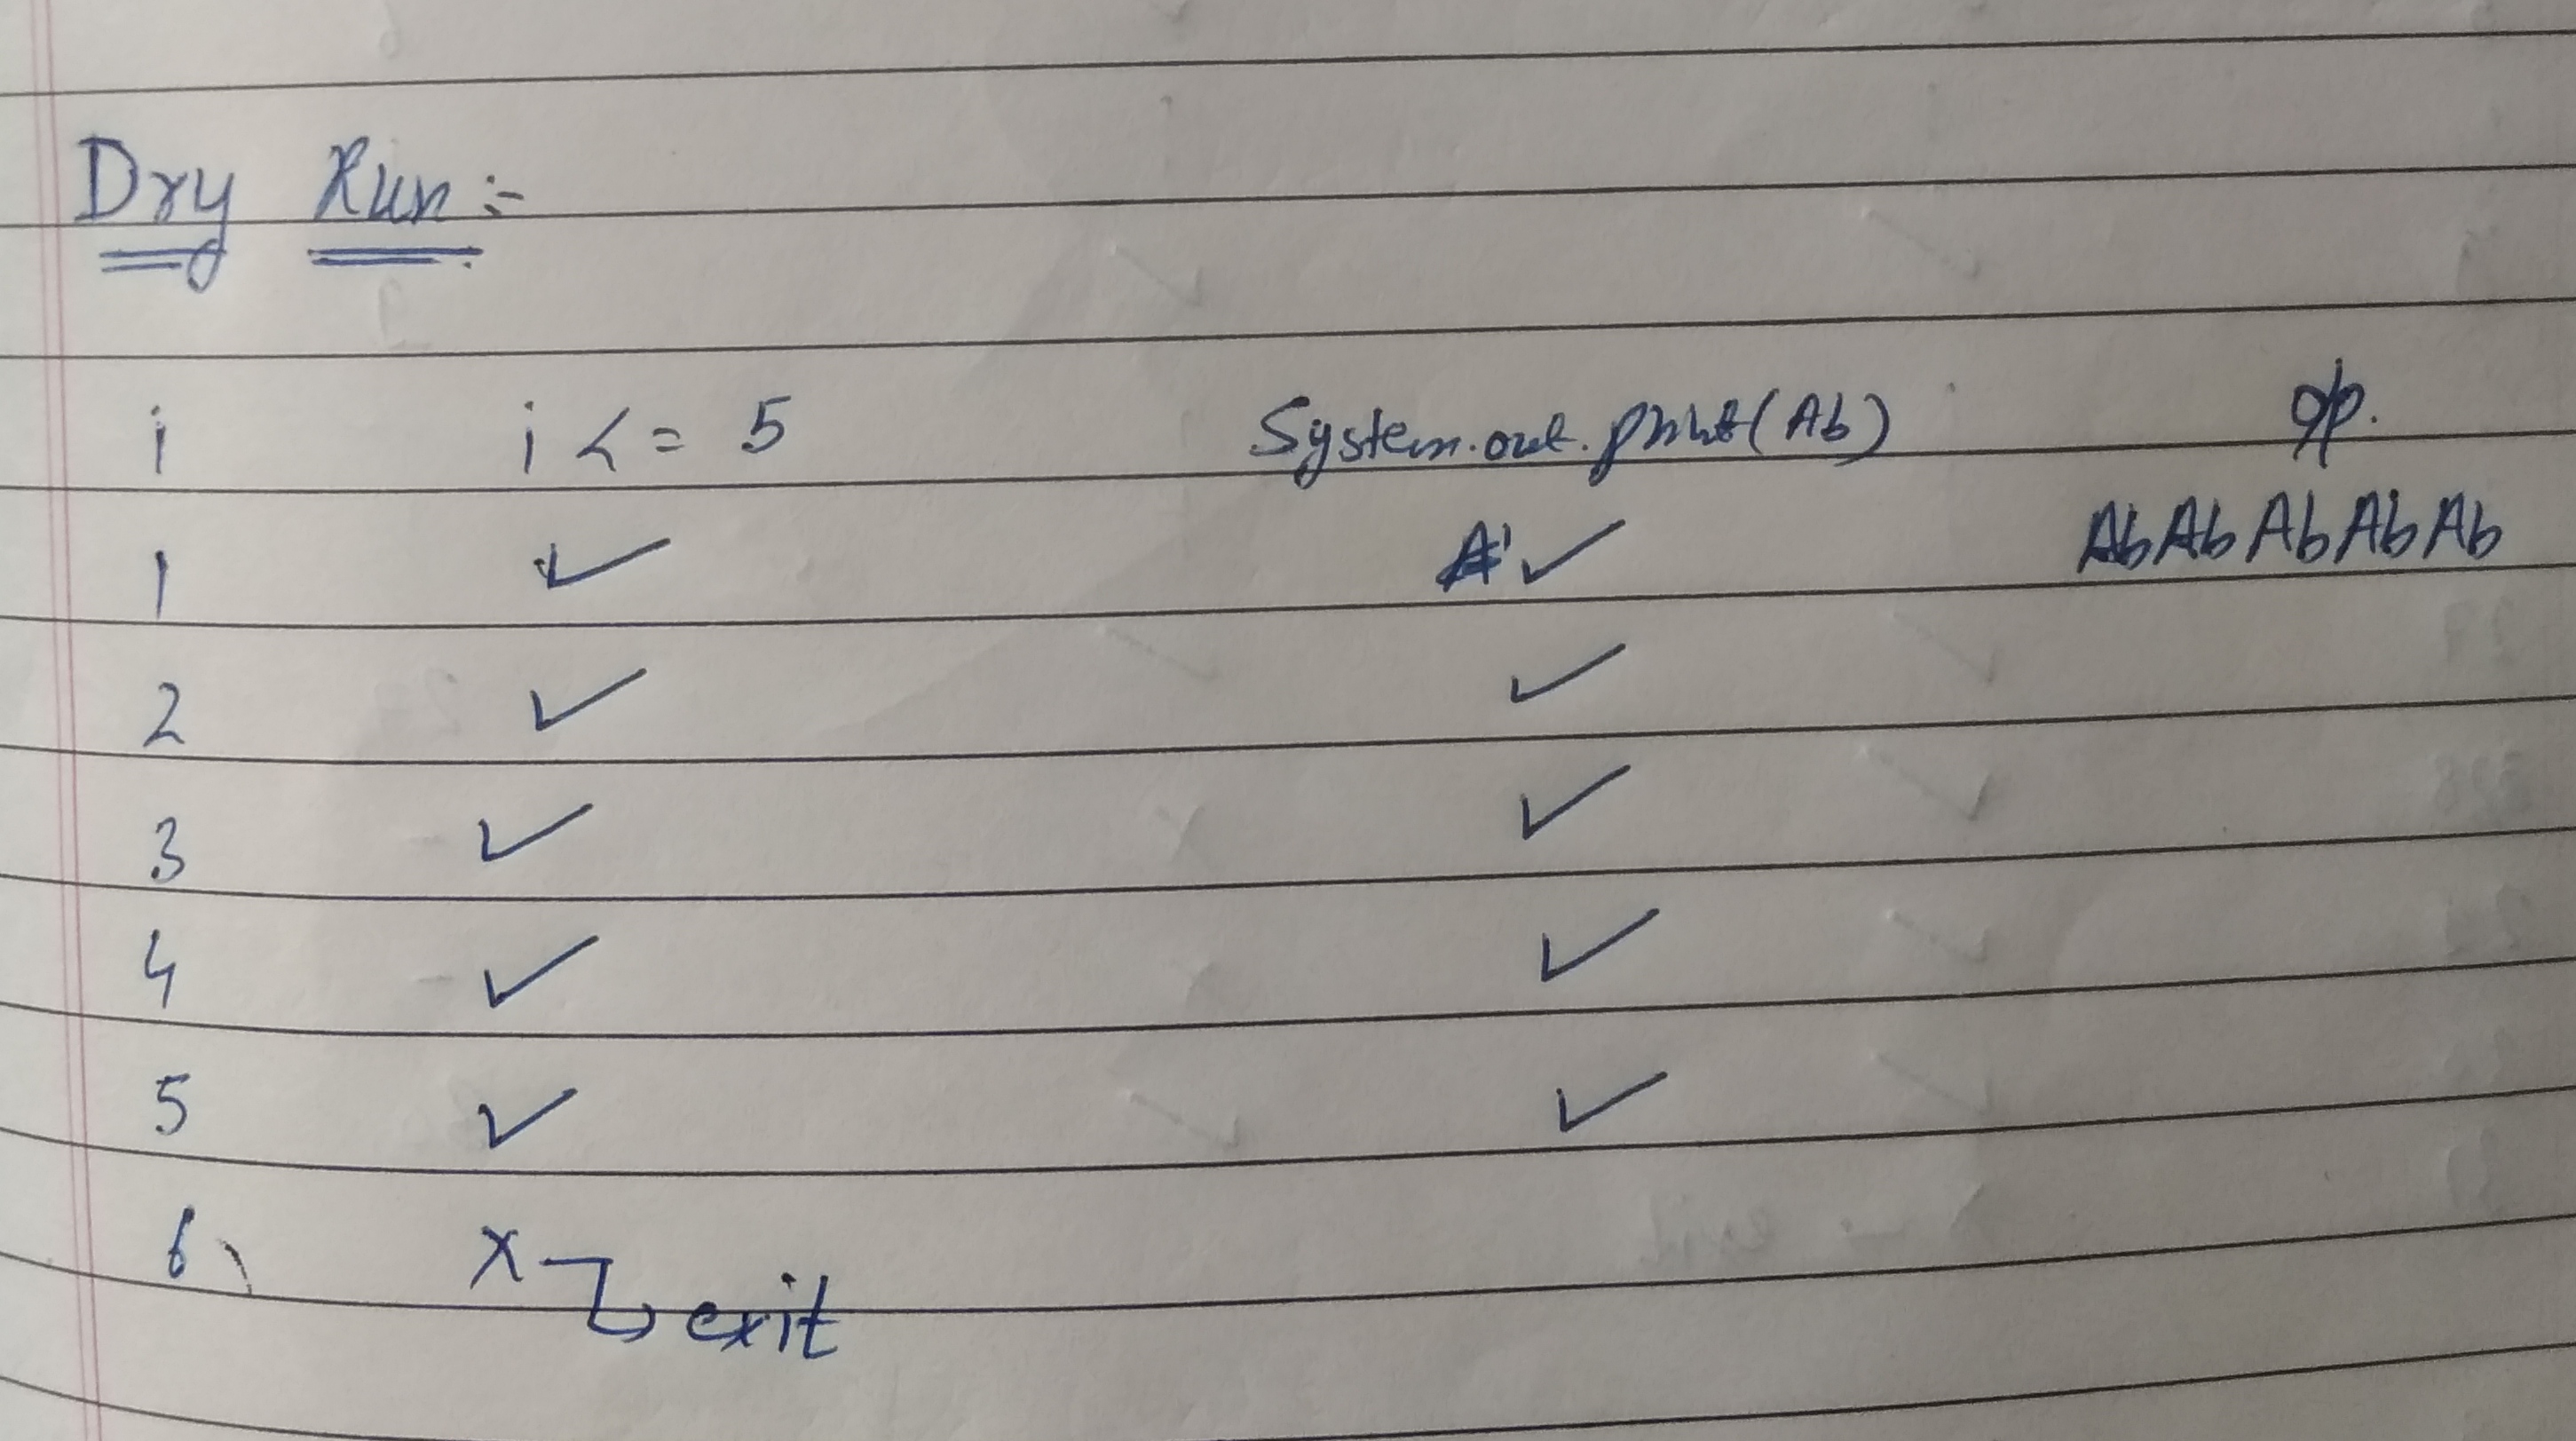 Dry Run :-
i i <= 5 System.out.print(Ab) o/p.
1 ✓ ✓ AbAbAbAbAb
2 ✓ ✓
3 ✓ ✓
4 ✓ ✓
5 ✓ ✓
6 x exit